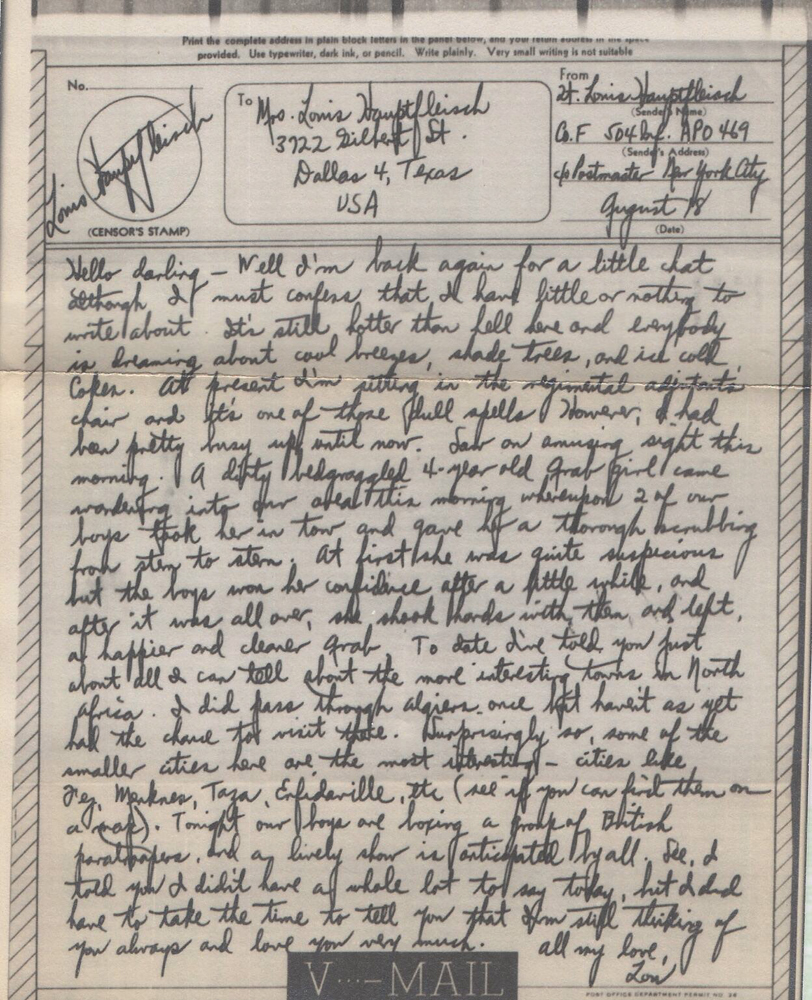 Print the complete address in plain block letters in the panel below, and your return address in the space
provided. Use typewriter, dark ink, or pencil. Write plainly. Very small writing is not suitable
No.
Louis Hauptfleisch
(CENSOR'S STAMP)
To Mrs. Louis Hauptfleisch
3722 Gilbert St.
Dallas 4, Texas
USA
From
Lt. Louis Hauptfleisch
(Sender's Name)
Co. F 504 Inf. APO 469
(Sender's Address)
c/o Postmaster New York City
August 18
(Date)
Hello darling – Well I'm back again for a little chat
although I must confess that I have little or nothing to
write about. It's still hotter than hell here and everybody
is dreaming about cool breezes, shade trees, and ice cold
Cokes. At present I'm sitting in the regimental adjutant's
chair and it's one of those dull spells. However, I had
been pretty busy up until now. Saw an amusing sight this
morning. A dirty bedgraggled 4-year old Arab girl came
wandering into our area this morning whereupon 2 of our
boys took her in tow and gave her a thorough scrubbing
from stem to stern. At first she was quite suspicious
but the boys won her confidence after a little while, and
after it was all over, she shook hands with them and left,
a happier and cleaner Arab. To date I've told you just
about all I can tell about the more interesting towns in North
Africa. I did pass through Algiers once but haven't as yet
had the chance to visit there. Surprisingly so, some of the
smaller cities here are the most interesting – cities like
Fez, Meknes, Taza, Enfidaville, etc (see if you can find them on
a map). Tonight our boys are boxing a group of British
paratroopers, and a lively show is anticipated by all. See, I
told you I didn't have a whole lot to say today, but I did
have to take the time to tell you that I'm still thinking of
you always and love you very much. all my love,
Lou
V···—MAIL
POST OFFICE DEPARTMENT PERMIT NO.